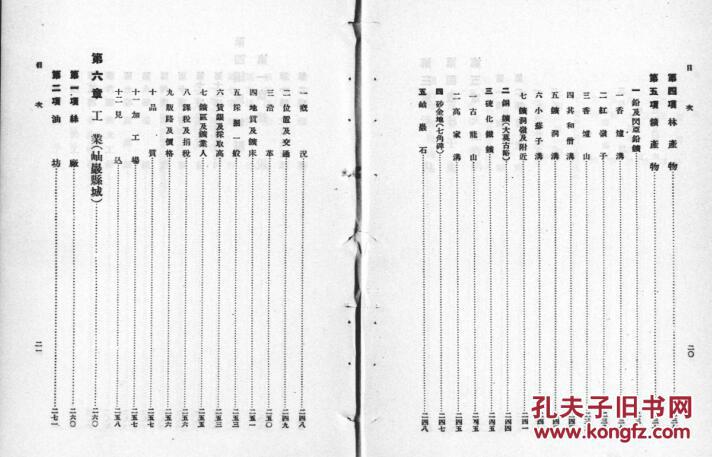 目次
第四項 林產物
第五項 鑛產物
一 鉛及閃亞鉛鑛
一 香爐溝
二 紅嶺子
三 香爐山
四 其和僧溝
五 鑛洞溝
六 小蘇子溝
七 鑛洞嶺及附近 二四一
二 銅鑛 二四四
一 古龍山 二四五
二 高家溝 二四五
三 硫化鐵鑛
四 砂金地 二四七
五 岫巖石 二四八
二〇
目次
一 概況 二四八
二 位置及交通 二四九
三 沿革 二五〇
四 地質及鑛床 二五一
五 採掘一般 二五三
六 賃銀及採取高 二五三
七 鑛區及鑛業人 二五五
八 課稅及捐稅 二五六
九 販路及價格 二五六
十 品質 二五七
十一 加工場 二五七
十二 見込 二五八
第六章 工業(岫巖縣城) 二六〇
第一項 絲廠 二六〇
第二項 油坊 二七一
二一
孔夫子旧书网
www.kongfz.com